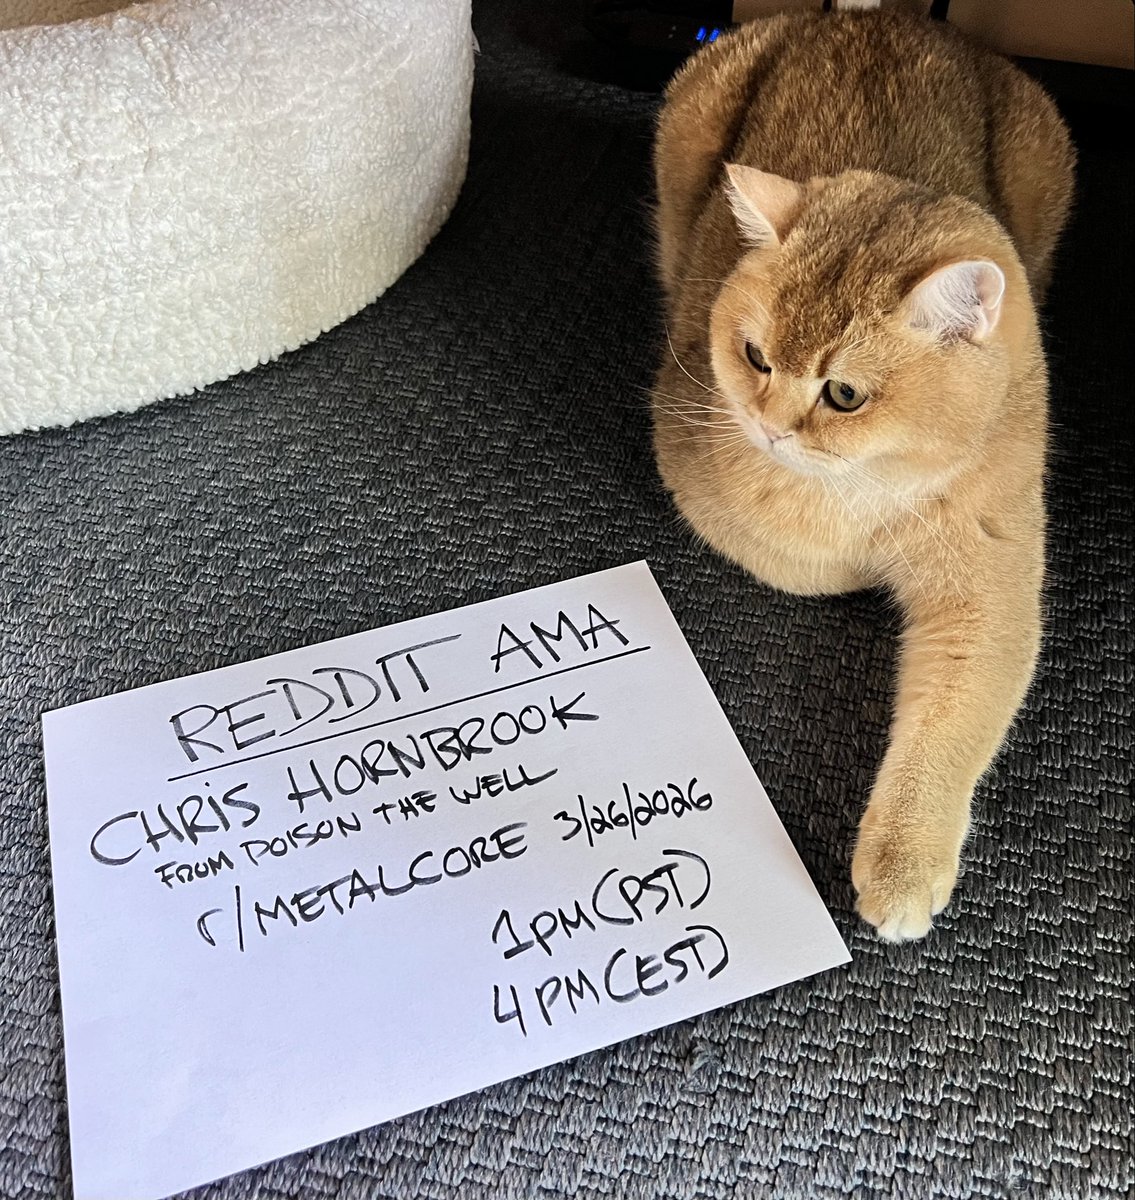 REDDIT AMA
CHRiS HORNBROOK
FROM POISON THE WELL
r/METALCORE 3/26/2026
1PM (PST)
4PM (EST)